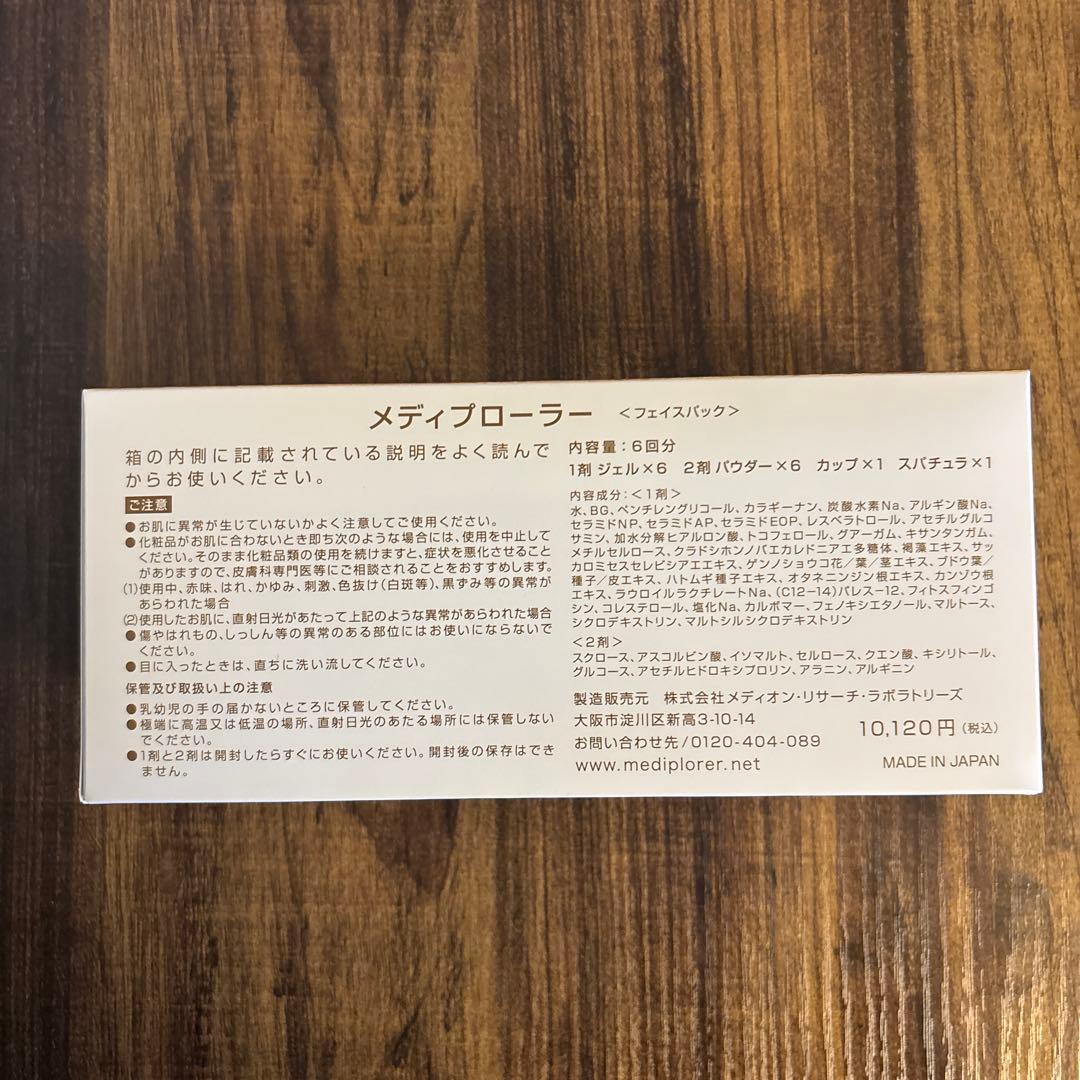 メディプローラー <フェイスパック>
箱の内側に記載されている説明をよく読んで
からお使いください。
ご注意
●お肌に異常が生じていないかよく注意してご使用ください。
●化粧品がお肌に合わないとき即ち次のような場合には、使用を中止して
ください。そのまま化粧品類の使用を続けますと、症状を悪化させること
がありますので、皮膚科専門医等にご相談されることをおすすめします。
(1)使用中、赤味、はれ、かゆみ、刺激、色抜け(白斑等)、黒ずみ等の異常が
あらわれた場合
(2)使用したお肌に、直射日光があたって上記のような異常があらわれた場合
●傷やはれもの、しっしん等の異常のある部位にはお使いにならないで
ください。
●目に入ったときは、直ちに洗い流してください。
保管及び取扱い上の注意
●乳幼児の手の届かないところに保管してください。
●極端に高温又は低温の場所、直射日光のあたる場所には保管しない
でください。
●1剤と2剤は開封したらすぐにお使いください。開封後の保存はでき
ません。
内容量:6回分
1剤 ジェル×6 2剤 パウダー×6 カップ×1 スパチュラ×1
内容成分:<1剤>
水、BG、ペンチレングリコール、カラギーナン、炭酸水素Na、アルギン酸Na、
セラミドNP、セラミドAP、セラミドEOP、レスベラトロール、アセチルグルコ
サミン、加水分解ヒアルロン酸、トコフェロール、グアーガム、キサンタンガム、
メチルセルロース、クラドシホンノバエカレドニアエ多糖体、褐藻エキス、サッ
カロミセスセレビシアエエキス、ゲンノショウコ花/葉/茎エキス、ブドウ葉/
種子/皮エキス、ハトムギ種子エキス、オタネニンジン根エキス、カンゾウ根
エキス、ラウロイルラクチレートNa、(C12-14)パレス-12、フィトスフィンゴ
シン、コレステロール、塩化Na、カルボマー、フェノキシエタノール、マルトース、
シクロデキストリン、マルトシルシクロデキストリン
<2剤>
スクロース、アスコルビン酸、イソマルト、セルロース、クエン酸、キシリトール、
グルコース、アセチルヒドロキシプロリン、アラニン、アルギニン
製造販売元 株式会社メディオン・リサーチ・ラボラトリーズ
大阪市淀川区新高3-10-14
お問い合わせ先/0120-404-089
www.mediplorer.net
10,120円(税込)
MADE IN JAPAN